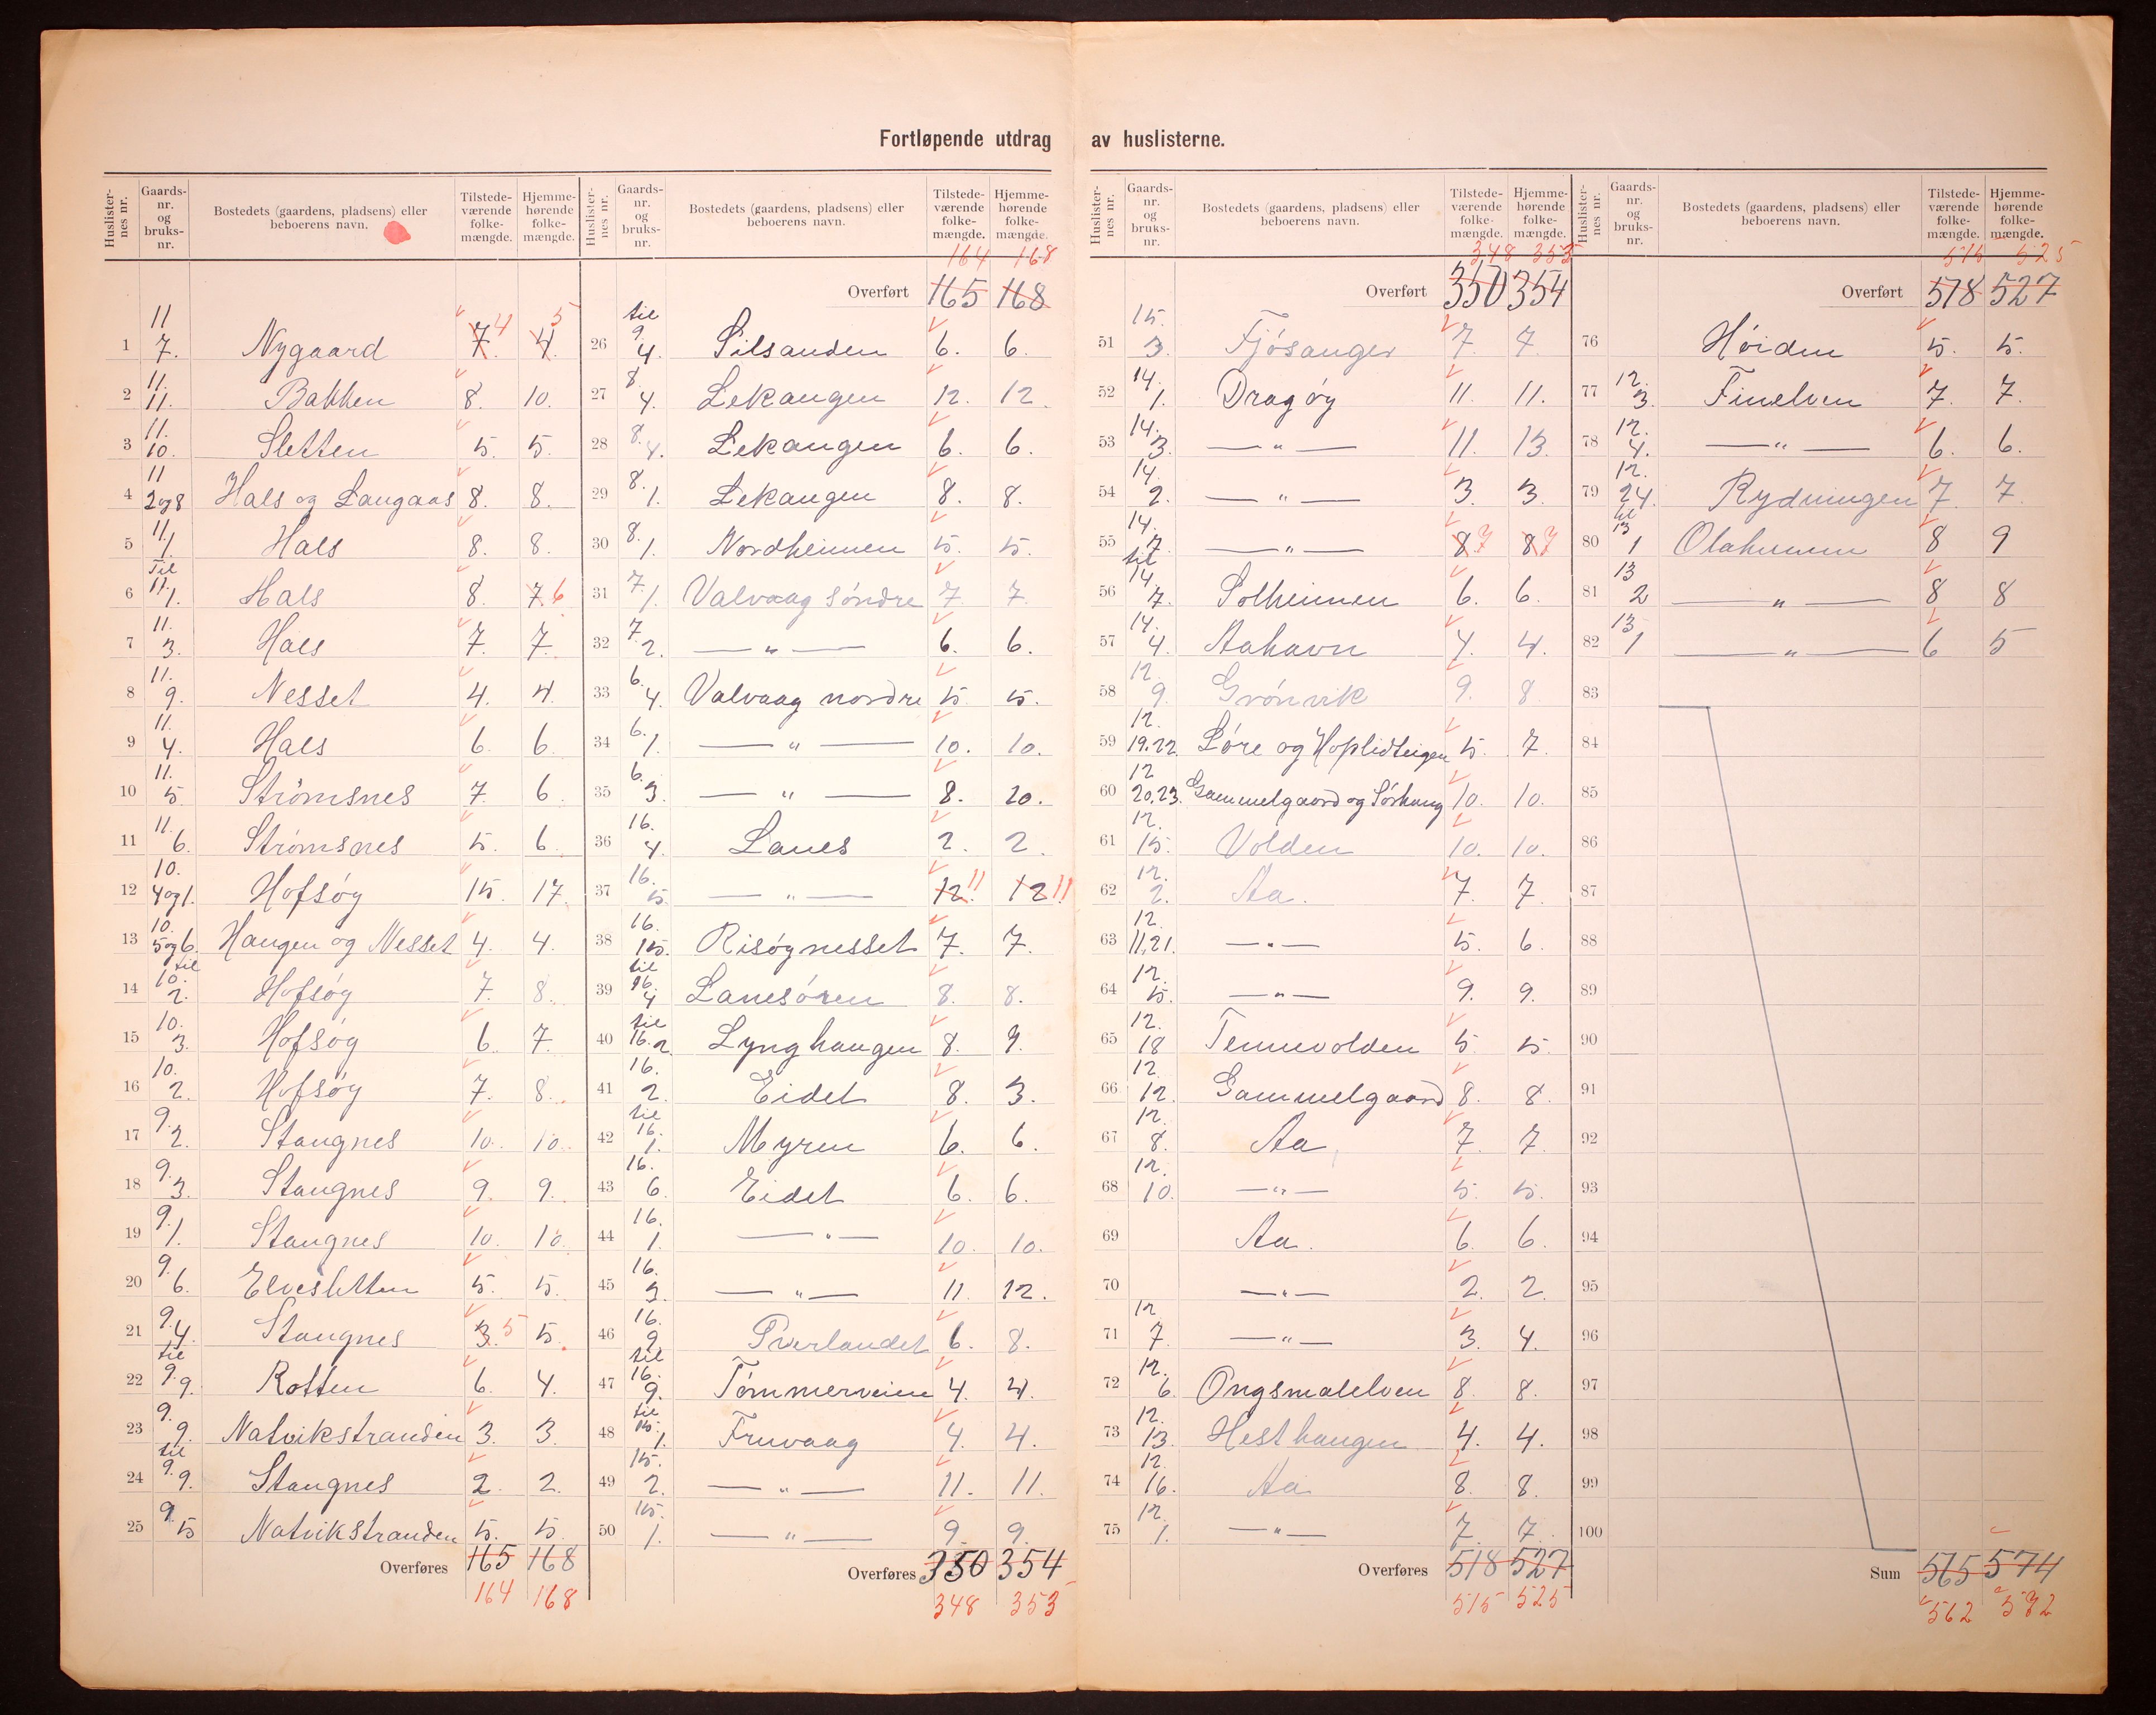 Fortløpende utdrag av huslisterne.
Huslister-nes nr. Gaards-nr. og bruks-nr. Bostedets (gaardens, pladsens) eller beboerens navn. Tilstede-værende folke-mængde. Hjemme-hørende folke-mængde.
11
1 7. Nygaard 7. 4 4. 5
11.
2 11. Bakken 8. 10.
11.
3 10. Sletten 5. 5.
11
4 2og8 Hals og Langaas 8. 8.
11.
5 1. Hals 8. 8.
Til 11.
6 1. Hals 8. 7 6
11.
7 3. Hals 7. 7.
11.
8 9. Nesset 4. 4.
11.
9 4. Hals 6. 6.
11.
10 5. Strømsnes 7. 6.
11.
11 6. Strømsnes 5. 6.
10.
12 4og1. Hofsøy 15. 17.
10.
13 5og6. Haugen og Nesset 4. 4.
til 10.
14 2. Hofsøy 7. 8.
10.
15 3. Hofsøy 6. 7.
10.
16 2. Hofsøy 7. 8.
9.
17 2. Stangnes 10. 10.
9.
18 3. Stangnes 9. 9.
9.
19 1. Stangnes 10. 10.
9.
20 6. Elvesletten 5. 5.
9.
21 4. Stangnes 3. 5 5.
til 9.
22 9. Rotten 6. 4.
9.
23 9. Natvikstranden 3. 3.
til 9.
24 9. Stangnes 2. 2.
9.
25 5 Natvikstranden 5. 5.
Overføres 165 168
164 168
Huslister-nes nr. Gaards-nr. og bruks-nr. Bostedets (gaardens, pladsens) eller beboerens navn. Tilstede-værende folke-mængde. Hjemme-hørende folke-mængde.
164 168
Overført 165 168
til 9.
26 4. Silsanden 6. 6.
8.
27 4. Lekangen 12. 12.
8.
28 4. Lekangen 6. 6.
8.
29 1. Lekangen 8. 8.
8.
30 1. Nordheimen 5. 5.
7.
31 1. Valvaag søndre 7 7.
7.
32 2. — " — 6. 6.
6.
33 4. Valvaag nordre 5. 5.
6.
34 1. — " — 10. 10.
6.
35 3. — " — 8. 10.
16.
36 4. Lanes 2. 2.
16.
37 5. — " — 12. 11 12 11
16.
38 15. Risøynesset 7. 7.
til 16.
39 4 Lanesøren 8. 8.
til
40 16. 2. Lynghaugen 8. 9.
16.
41 2. Eidet 8. 3.
til 16.
42 1. Myren 6. 6.
16.
43 6. Eidet 6. 6.
16.
44 1. — " — 10. 10.
16.
45 3. — " — 11. 12.
16.
46 9. Tverlandet 6. 8.
til 16.
47 9. Tømmerveien 4. 4.
til 15.
48 1. Fruvaag 4. 4.
15.
49 2. — " — 11. 11.
15.
50 1. — " — 9. 9.
Overføres 350 354
348 353
Huslister-nes nr. Gaards-nr. og bruks-nr. Bostedets (gaardens, pladsens) eller beboerens navn. Tilstede-værende folke-mængde. Hjemme-hørende folke-mængde.
348 353
Overført 350 354
15.
51 3. Fjøsanger 7. 7.
14.
52 1. Dragøy 11. 11.
14.
53 3. — " — 11. 13.
14.
54 2. — " — 3. 3.
14.
55 7. — " — 8 7 8 7
til 14.
56 7. Solheimen 6. 6.
14.
57 4. Aahavn 4. 4.
12.
58 9. Grønvik 9. 8.
12.
59 19.22. Løre og Hoplidteigen 5. 7.
12
60 20,23. Gammelgaard og Sørhaug 10. 10.
12.
61 15. Volden 10. 10.
12.
62 2. Aa. 7. 7.
12.
63 11,21. — " — 5. 6.
12.
64 5. — " — 9. 9.
12.
65 18 Tennevolden 5. 5.
12.
66 12. Gammelgaard 8. 8.
12.
67 8. Aa 7. 7.
12.
68 10. — " — 5. 5.
69 Aa. 6. 6.
70 — " — 2. 2.
12
71 7. — " — 3. 4.
12.
72 6. Ongsmalelven 8. 8.
12.
73 13. Hesthaugen 4. 4.
12.
74 16. Aa 8. 8.
12.
75 1. — " — 7. 7.
Overføres 518 527
515 525
Huslister-nes nr. Gaards-nr. og bruks-nr. Bostedets (gaardens, pladsens) eller beboerens navn. Tilstede-værende folke-mængde. Hjemme-hørende folke-mængde.
515 525
Overført 518 527
76 Høiden 5. 5.
12.
77 3. Finelven 7. 7.
12.
78 4. — " — 6. 6.
12.
79 24. Rydningen 7. 7.
til 13
80 1 Olaheimen 8 9
13
81 2 — " — 8 8
13
82 1 — " — 6 5
83
84
85
86
87
88
89
90
91
92
93
94
95
96
97
98
99
100
Sum 565 574
562 572